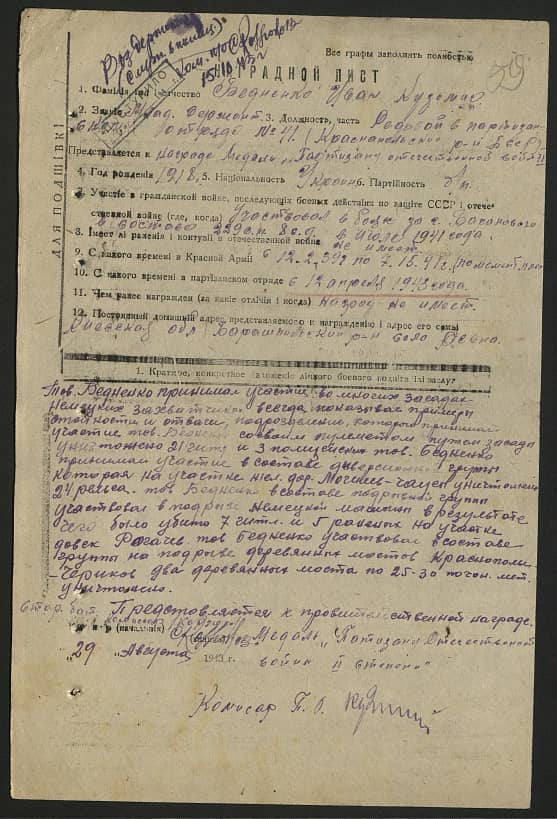 Воздержаться
59
Все графы заполнять полностью
НАГРАДНОЙ ЛИСТ
ДЛЯ ПОДШИВКИ
1. Фамилия имя отчество Бедненко Иван Кузьмич
2. Звание Млад. Сержант. 3. Должность, часть Рядовой в партизан-
отряде № 41 (Краснопольский р-н БССР)
Представляется к награде Медали „Партизану отечественной войны II
4. Год рождения 1918, 5. Национальность Украин 6. Партийность б/п.
7. Участие в гражданской войне, последующих боевых действиях по защите СССР і отече-
ственной войне (где, когда) Участвовал в боях за с.
в составе 329 с.п. в Июле 1941 года.
8. Імеет лі раненія і контузіі в отечественной войне не имеет
9. С какого времени в Красной Армии с 12.2.39г по 7.15.41г.
10. С какого времени в партизанском отряде с 12 апреля 1943 года.
11. Чем ранее награжден (за какіе отлічія і когда) наград не имеет.
12. Постоянный домашній адрес представляемого к награждению і адрес его семьі
Киевская обл р-н село
1. Краткое, конкретное ізложеніе лічного боевого подвіга ілі заслуг
Тов. Бедненко принимал участие во многих засадах
немецких захватчиков всегда показывал примеры
стойкости и отваги, подразделение, которое принимал
участие тов. Бедненко со своим пулеметом засада
уничтожено 21 гитл и 3 полицейских тов. Бедненко
принимал участие в составе диверсионной группы
которая на участке жел. дор. уничтожено
24 рельса. тов Бедненко в составе подрывной группы
участвовал в подрыве немецкой машины в результате
чего было убито 7 гитл. и 5 раненых на участке
Довск Рогачев. тов Бедненко участвовал в составе
группы на подрыве деревянных мостов Краснополь-
Чериков два деревянных моста по 25-30 погон. мет.
уничтожено.
Представляется к правительственной награде.
(начальник) Медаль „Партизану Отечественной
„29 „Августа 1943 г. войны II степени"
Комисар П. О.